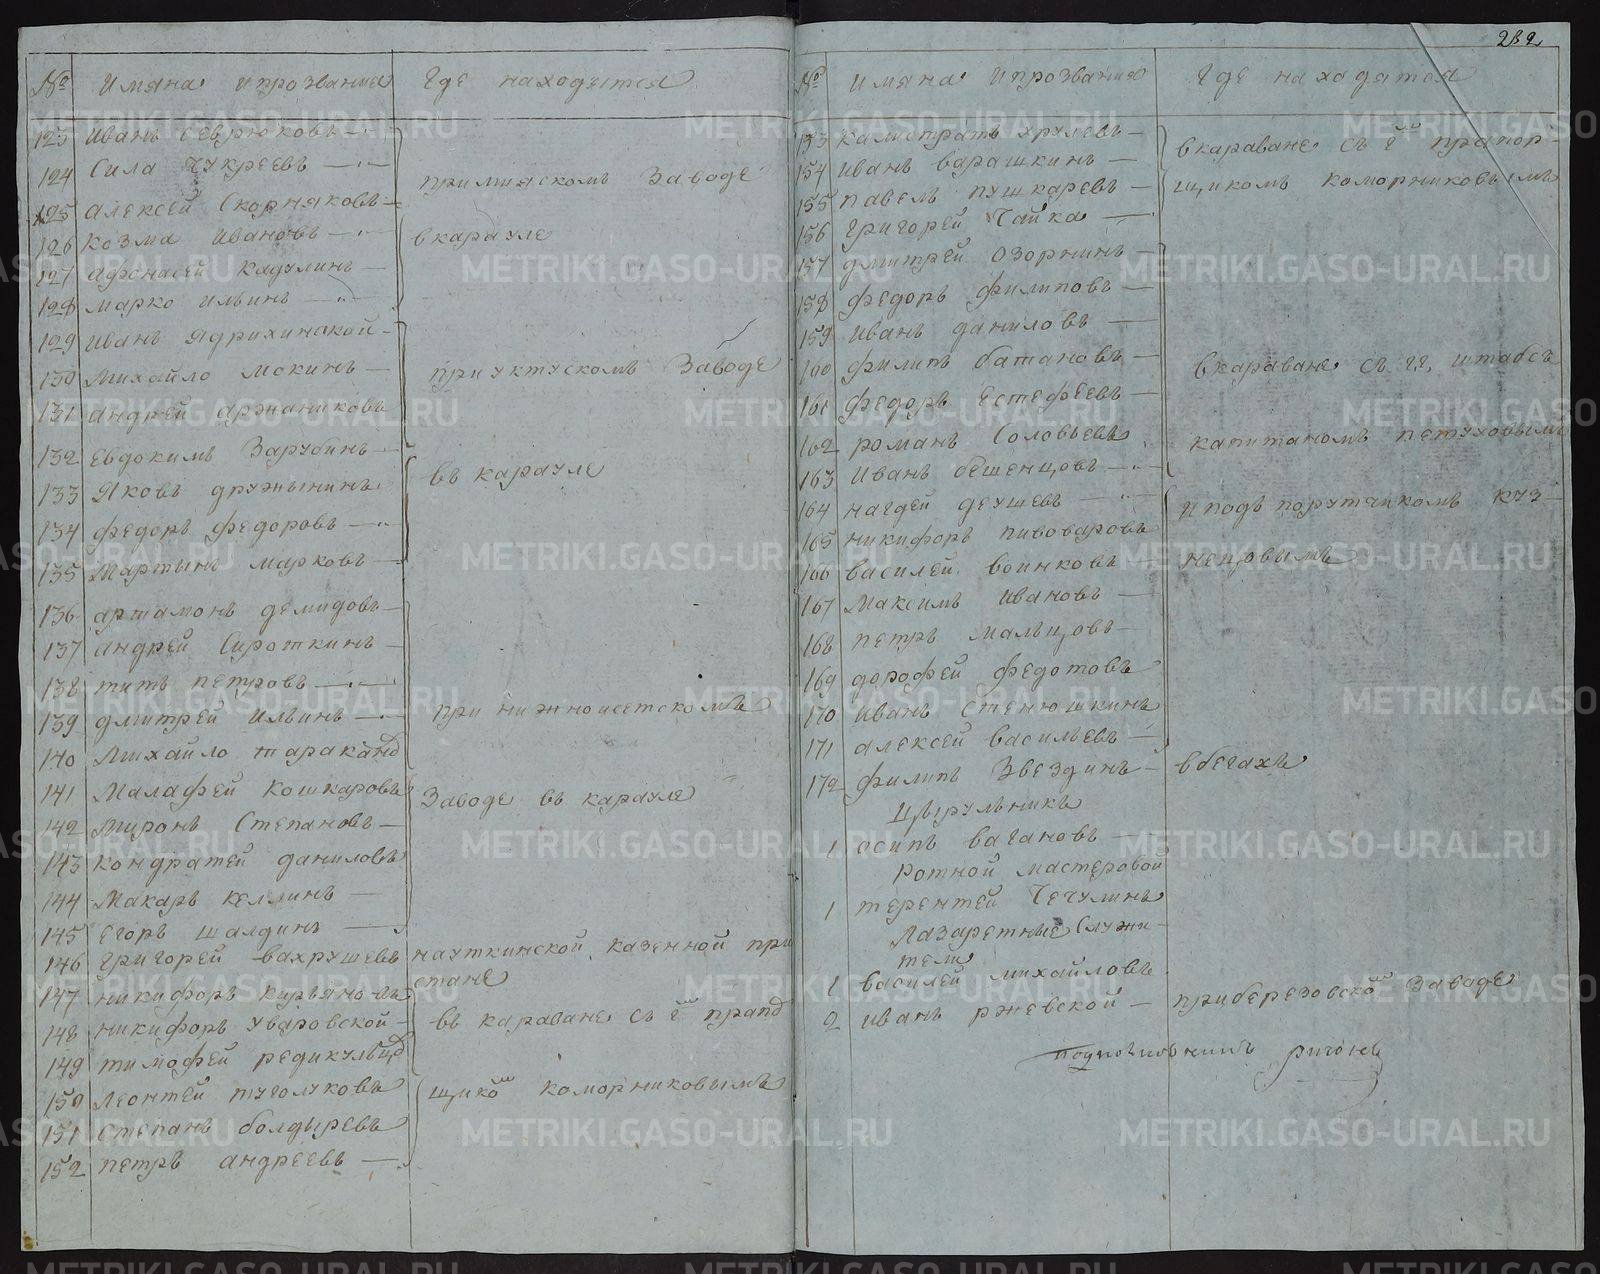 № Имяна и прозвание Где находятся
123 Иванъ Севрюковъ
124 Сила Чукреевъ
при миясскомъ заводе
125 алексей Скорняковъ
126 козма Ивановъ
в карауле
127 афонасей кадулинъ
128 марко ильинъ
129 Иванъ Ядрихинской
130 Михайло мокинъ
при уктускомъ заводе
131 андрей аржаниковъ
132 Евдокимъ Зарубинъ
въ карауле
133 Яковъ дружынинъ
134 федоръ федоровъ
135 Мартынъ марковъ
136 артамонъ демидовъ
137 андрей Сироткинъ
138 титъ петровъ
139 дмитрей Ильинъ
при нижноисетскомъ
140 Михайло таракан
141 Малафей Кошкаровъ
заводе въ карауле
142 Миронъ Степановъ
143 кондратей даниловъ
144 Макаръ келлинъ
145 Егоръ шалдинъ
146 григорей вахрушевъ
на уткинской казенной при
стане
147 никифоръ кирьяновъ
148 никифоръ Уваровской
въ караване съ г прапо
149 тимофей редикульц
150 леонтей туголуковъ
щико коморниковымъ
151 степанъ болдыревъ
152 петръ андреевъ
232
№ Имяна и прозвания Где находятся
153 калистратъ хрулевъ
в караване съ г прапор
154 иванъ варашкинъ
155 павелъ пушкаревъ
щикомъ коморниковымъ
156 григорей Чайка
157 дмитрей озорнинъ
158 федоръ филиповъ
159 иванъ даниловъ
160 филипъ батановъ
в караване съ гг, штабсъ
161 федоръ Естефеевъ
162 романъ Соловьевъ
капитаномъ петуховымъ
163 Иванъ бешенцовъ
164 нагдей деушевъ
и подъ порутчикомъ куз
165 никифоръ пивоваровъ
166 василей воинковъ
нецовымъ
167 Максимъ Ивановъ
168 петръ мальцовъ
169 дорофей федотовъ
170 Иванъ Стенюшкинъ
171 алексей васильевъ
172 филипъ Звездинъ
в бегахъ
Цырульникъ
1 осипъ вагановъ
Ротной мастеровой
1 терентей Чечулинъ
Лазаретные Служи
тели
1 василей михайловъ
2 иванъ ржевской
при березовско заводе